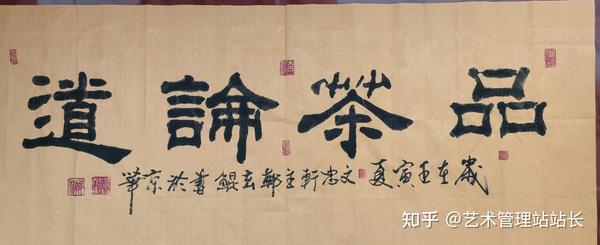 品茶論道
歲在壬寅夏文忠軒主鄭玄鯤書於京華
知乎 @艺术管理站站长